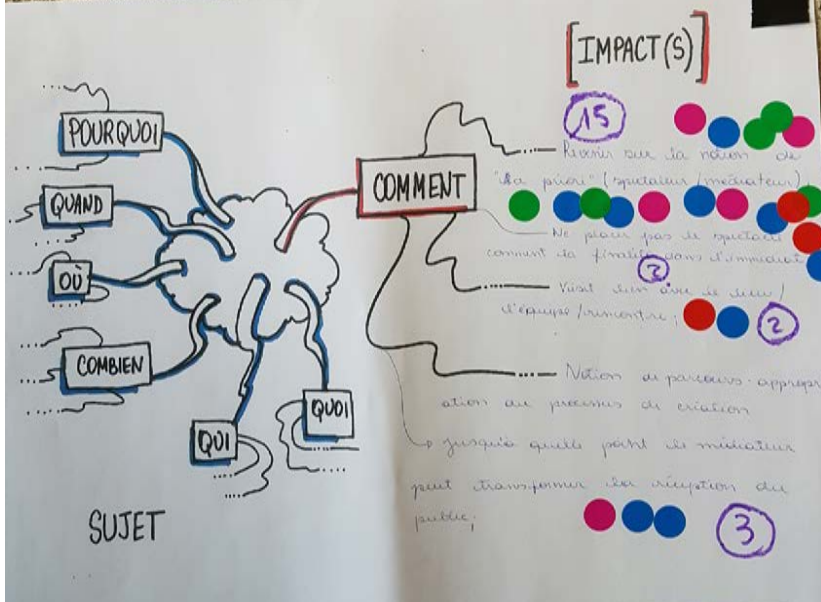 [IMPACT(S)]
POURQUOI
QUAND
OÙ
COMBIEN
QUI
QUOI
SUJET
COMMENT
15
Revenir sur la notion de
"d'a priori" (spectateur/médiateur)
Ne placer pas le spectacle
comment la finalité dans l'immédiat
3
lieu/
l'équipe/rencontre;
2
Notion de parcours - appropri
ation du processus de création
→ jusqu'à quelle point le médiateur
peut transformer la réception du
public;
3